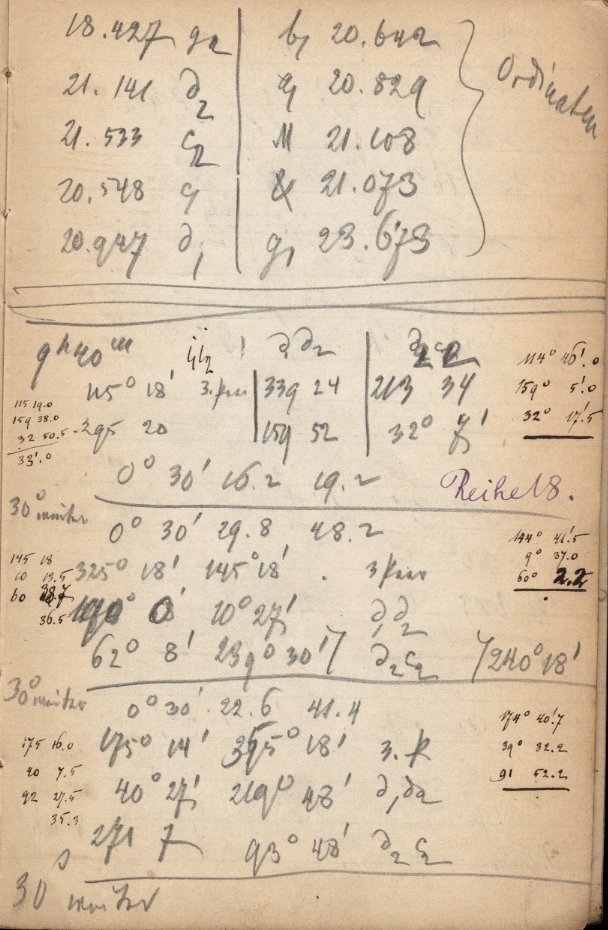 18.427 g2 | b1 20.642
21.141 d2 | 20.829
21.533 c2 | M 21.108
20.548 | 21.073
20.947 d1 | g1 23.673
Ordinaten
9h40m d1d2 | d2c2
115° 18' 3. Paar | 339 24 | 213 34
295 20 | 159 52 | 32° 7'
115 19.0
159 38.0
32 50.5
33'.0
114° 46'.0
159° 5'.0
32° 17'.5
0° 30' 16.2 19.2
Reihe 18.
30° weiter
0° 30' 29.8 48.2
325° 18' 145° 18' . 3 Paar
190° 0' 10° 27' d1d2
62° 8' 239° 30' d2c2 240° 18'
145 18
10 13.5
60
36.5
144° 41'.5
9° 37.0
60° 2.2
30° weiter
0° 30' 22.6 41.4
175° 14' 355° 18' 3. P
40° 27' 219° 48' d1d2
271 7 93° 48' d2c2
175 16.0
40 7.5
92 27.5
35.3
174° 40'.7
39° 32.2
91 52.2
30 weiter